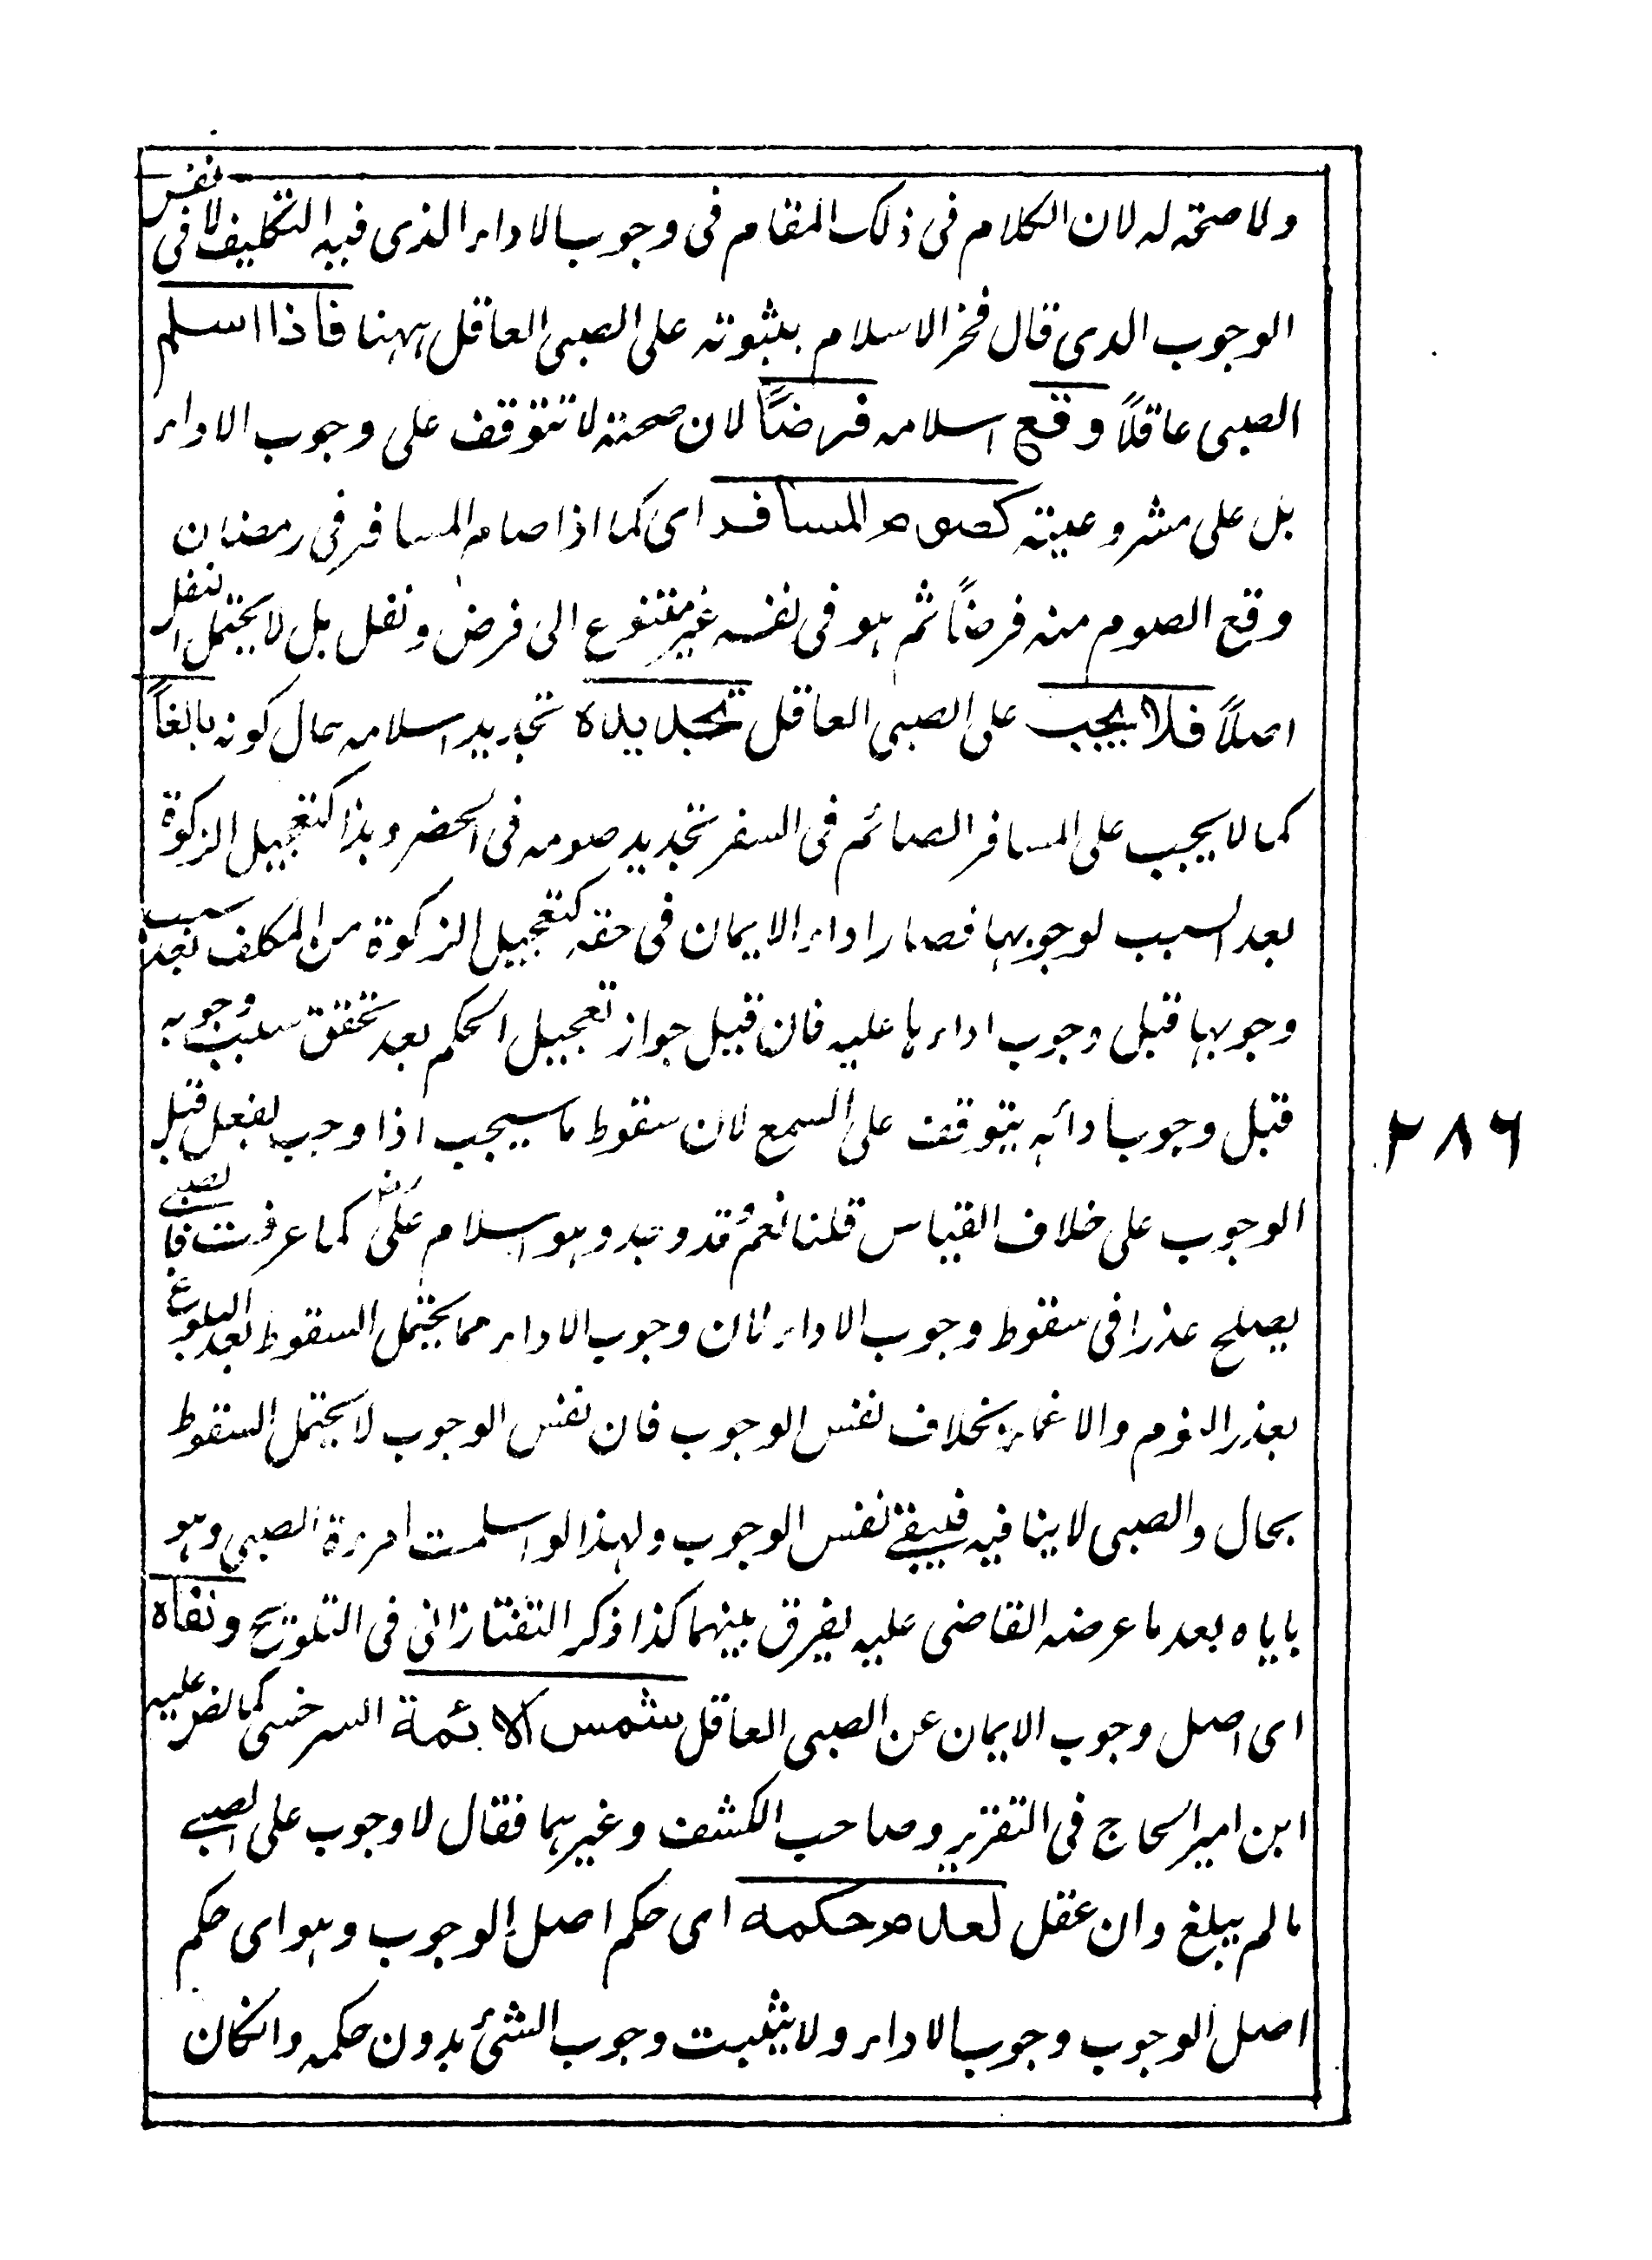 ولا صحة له لان الكلام فى ذلك المقام فى وجوب الاداء الذى فيه التكليف لا فى نفس
الوجوب الذى قال فخر الاسلام بثبوته على الصبى العاقل ههنا فاذا اسلم
الصبى عاقلاً وقع اسلامه فرضاً لان صحته لا تتوقف على وجوب الاداء
بل على مشروعيته كصوم المسافر اى كما اذا صام المسافر فى رمضان
وقع الصوم منه فرضاً ثم هو فى نفسه غير متنوع الى فرض ونفل بل لا يحتمل النفل
اصلاً فلا يجب على الصبى العاقل تجديده تجديد اسلامه حال كونه بالغاً
كما لا يجب على المسافر الصائم فى السفر تجديد صومه فى الحضر وهذا كتعجيل الزكوة
بعد السبب لوجوبها فصار اداء الايمان فى حقه كتعجيل الزكوة من المكلف بعد سبب
وجوبها قبل وجوب اداءها عليه فان قيل جواز تعجيل الحكم بعد تحقق سبب وجوبه
قبل وجوب ادائه يتوقف على السمع لان سقوط ما سيجب اذا وجب بفعل قبل
الوجوب على خلاف القياس قلنا نعم قد وجد وهو اسلام على رض كما عرفت فالصبى
يصلح عذرا فى سقوط وجوب الاداء لان وجوب الاداء مما يحتمل السقوط بعد البلوغ
بعذر النوم والاغماء بخلاف نفس الوجوب فان نفس الوجوب لا يحتمل السقوط
بحال والصبى لا ينافيه فيبقى نفس الوجوب ولهذا لو اسلمت امرءة الصبى وهو
يأباه بعد ما عرضه القاضى عليه يفرق بينهما كذا ذكر التفتازانى فى التلويح ونفاه
اى اصل وجوب الايمان عن الصبى العاقل شمس الائمة السرخسى كما نص عليه
ابن امير الحاج فى التقرير وصاحب الكشف وغيرهما فقال لا وجوب على الصبى
ما لم يبلغ وان عقل لعدم حكمه اى حكم اصل الوجوب وهو اى حكم
اصل الوجوب وجوب الاداء ولا يثبت وجوب الشئ بدون حكمه وان كان
٢٨٦